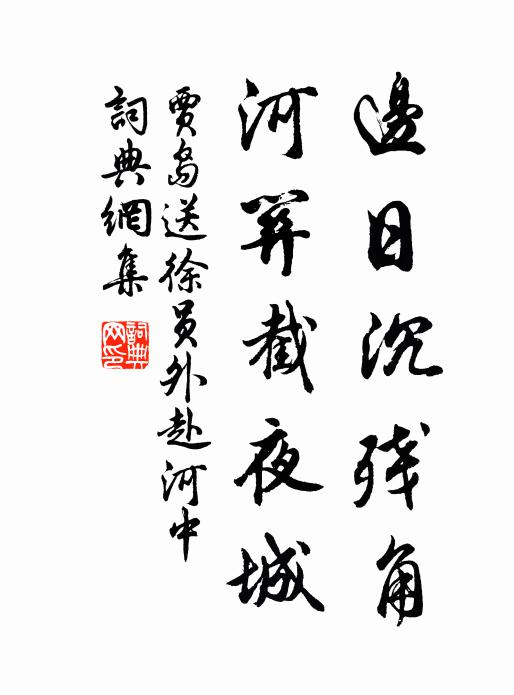 邊日沉殘角
河關截夜城
賈島送徐員外赴河中
詞典網集
詞典網印